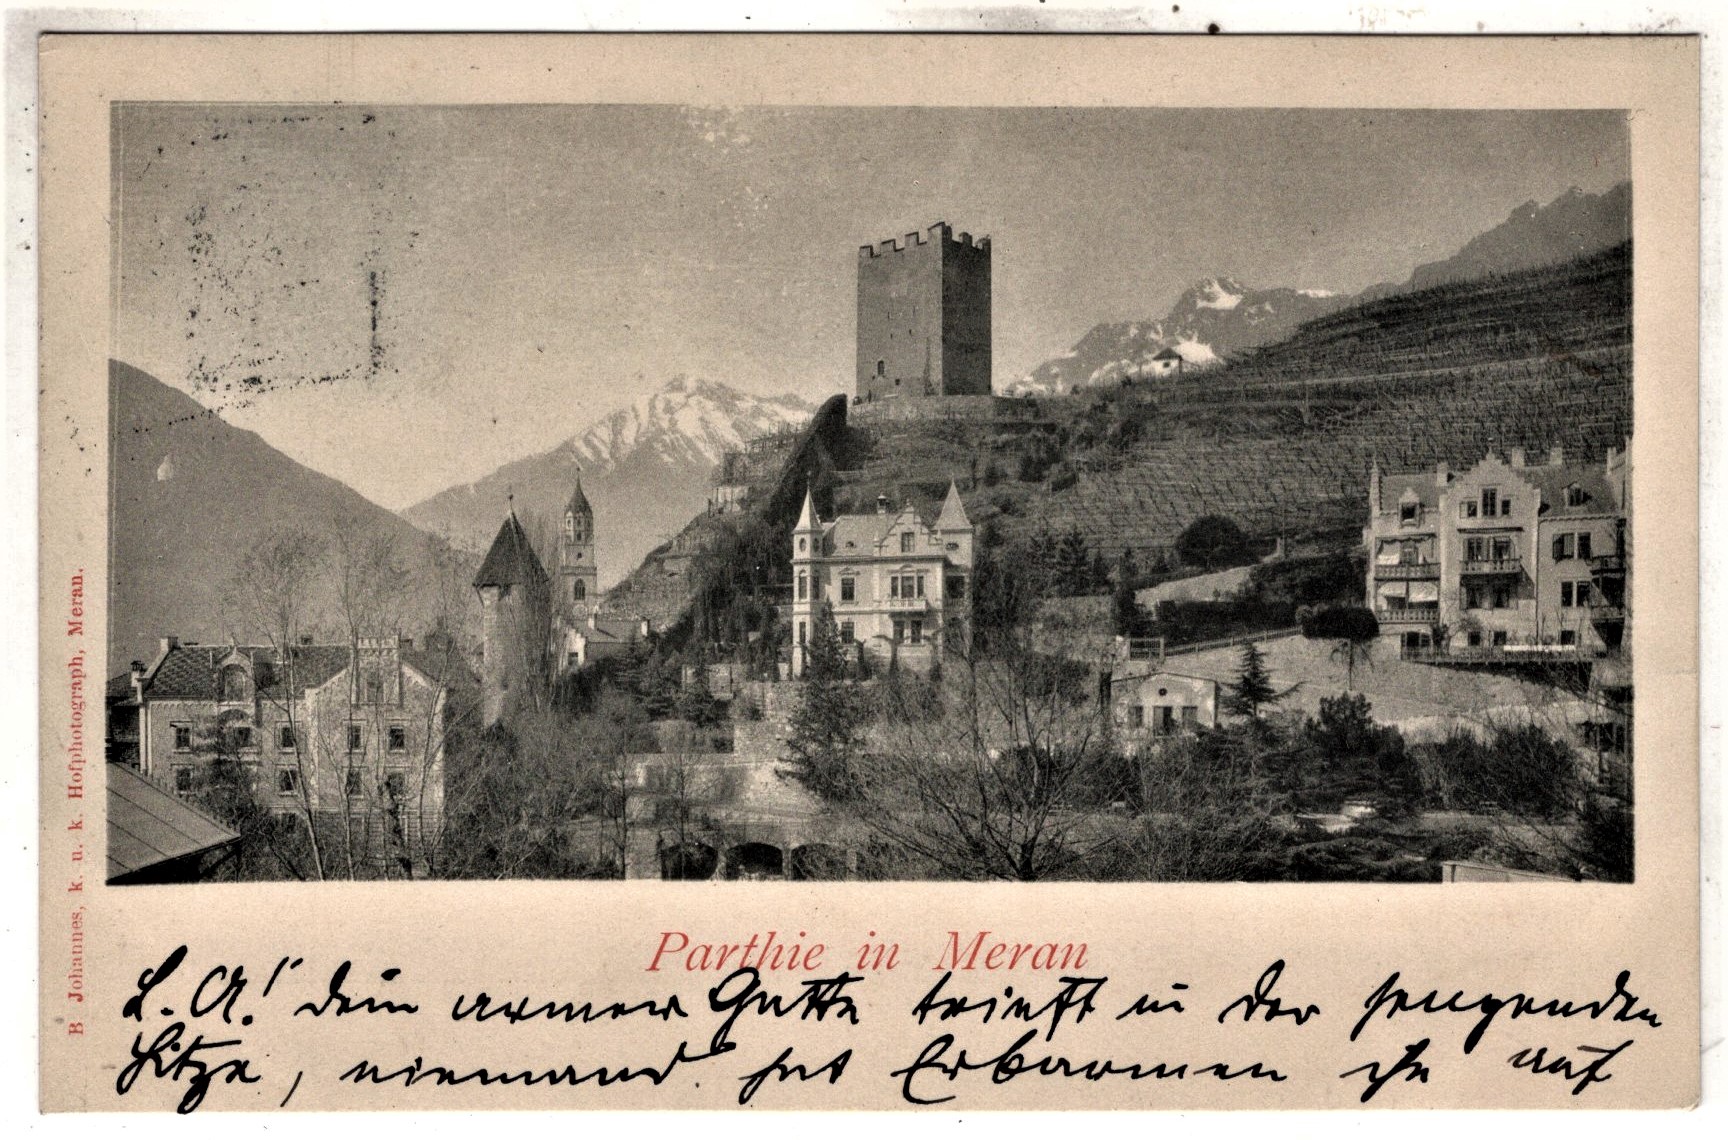 B Johannes, k. u. k. Hofphotograph, Meran.
Parthie in Meran
L. A! dein armer Gatte trieft in der sengenden
Hitze, niemand hat Erbarmen ihn auf